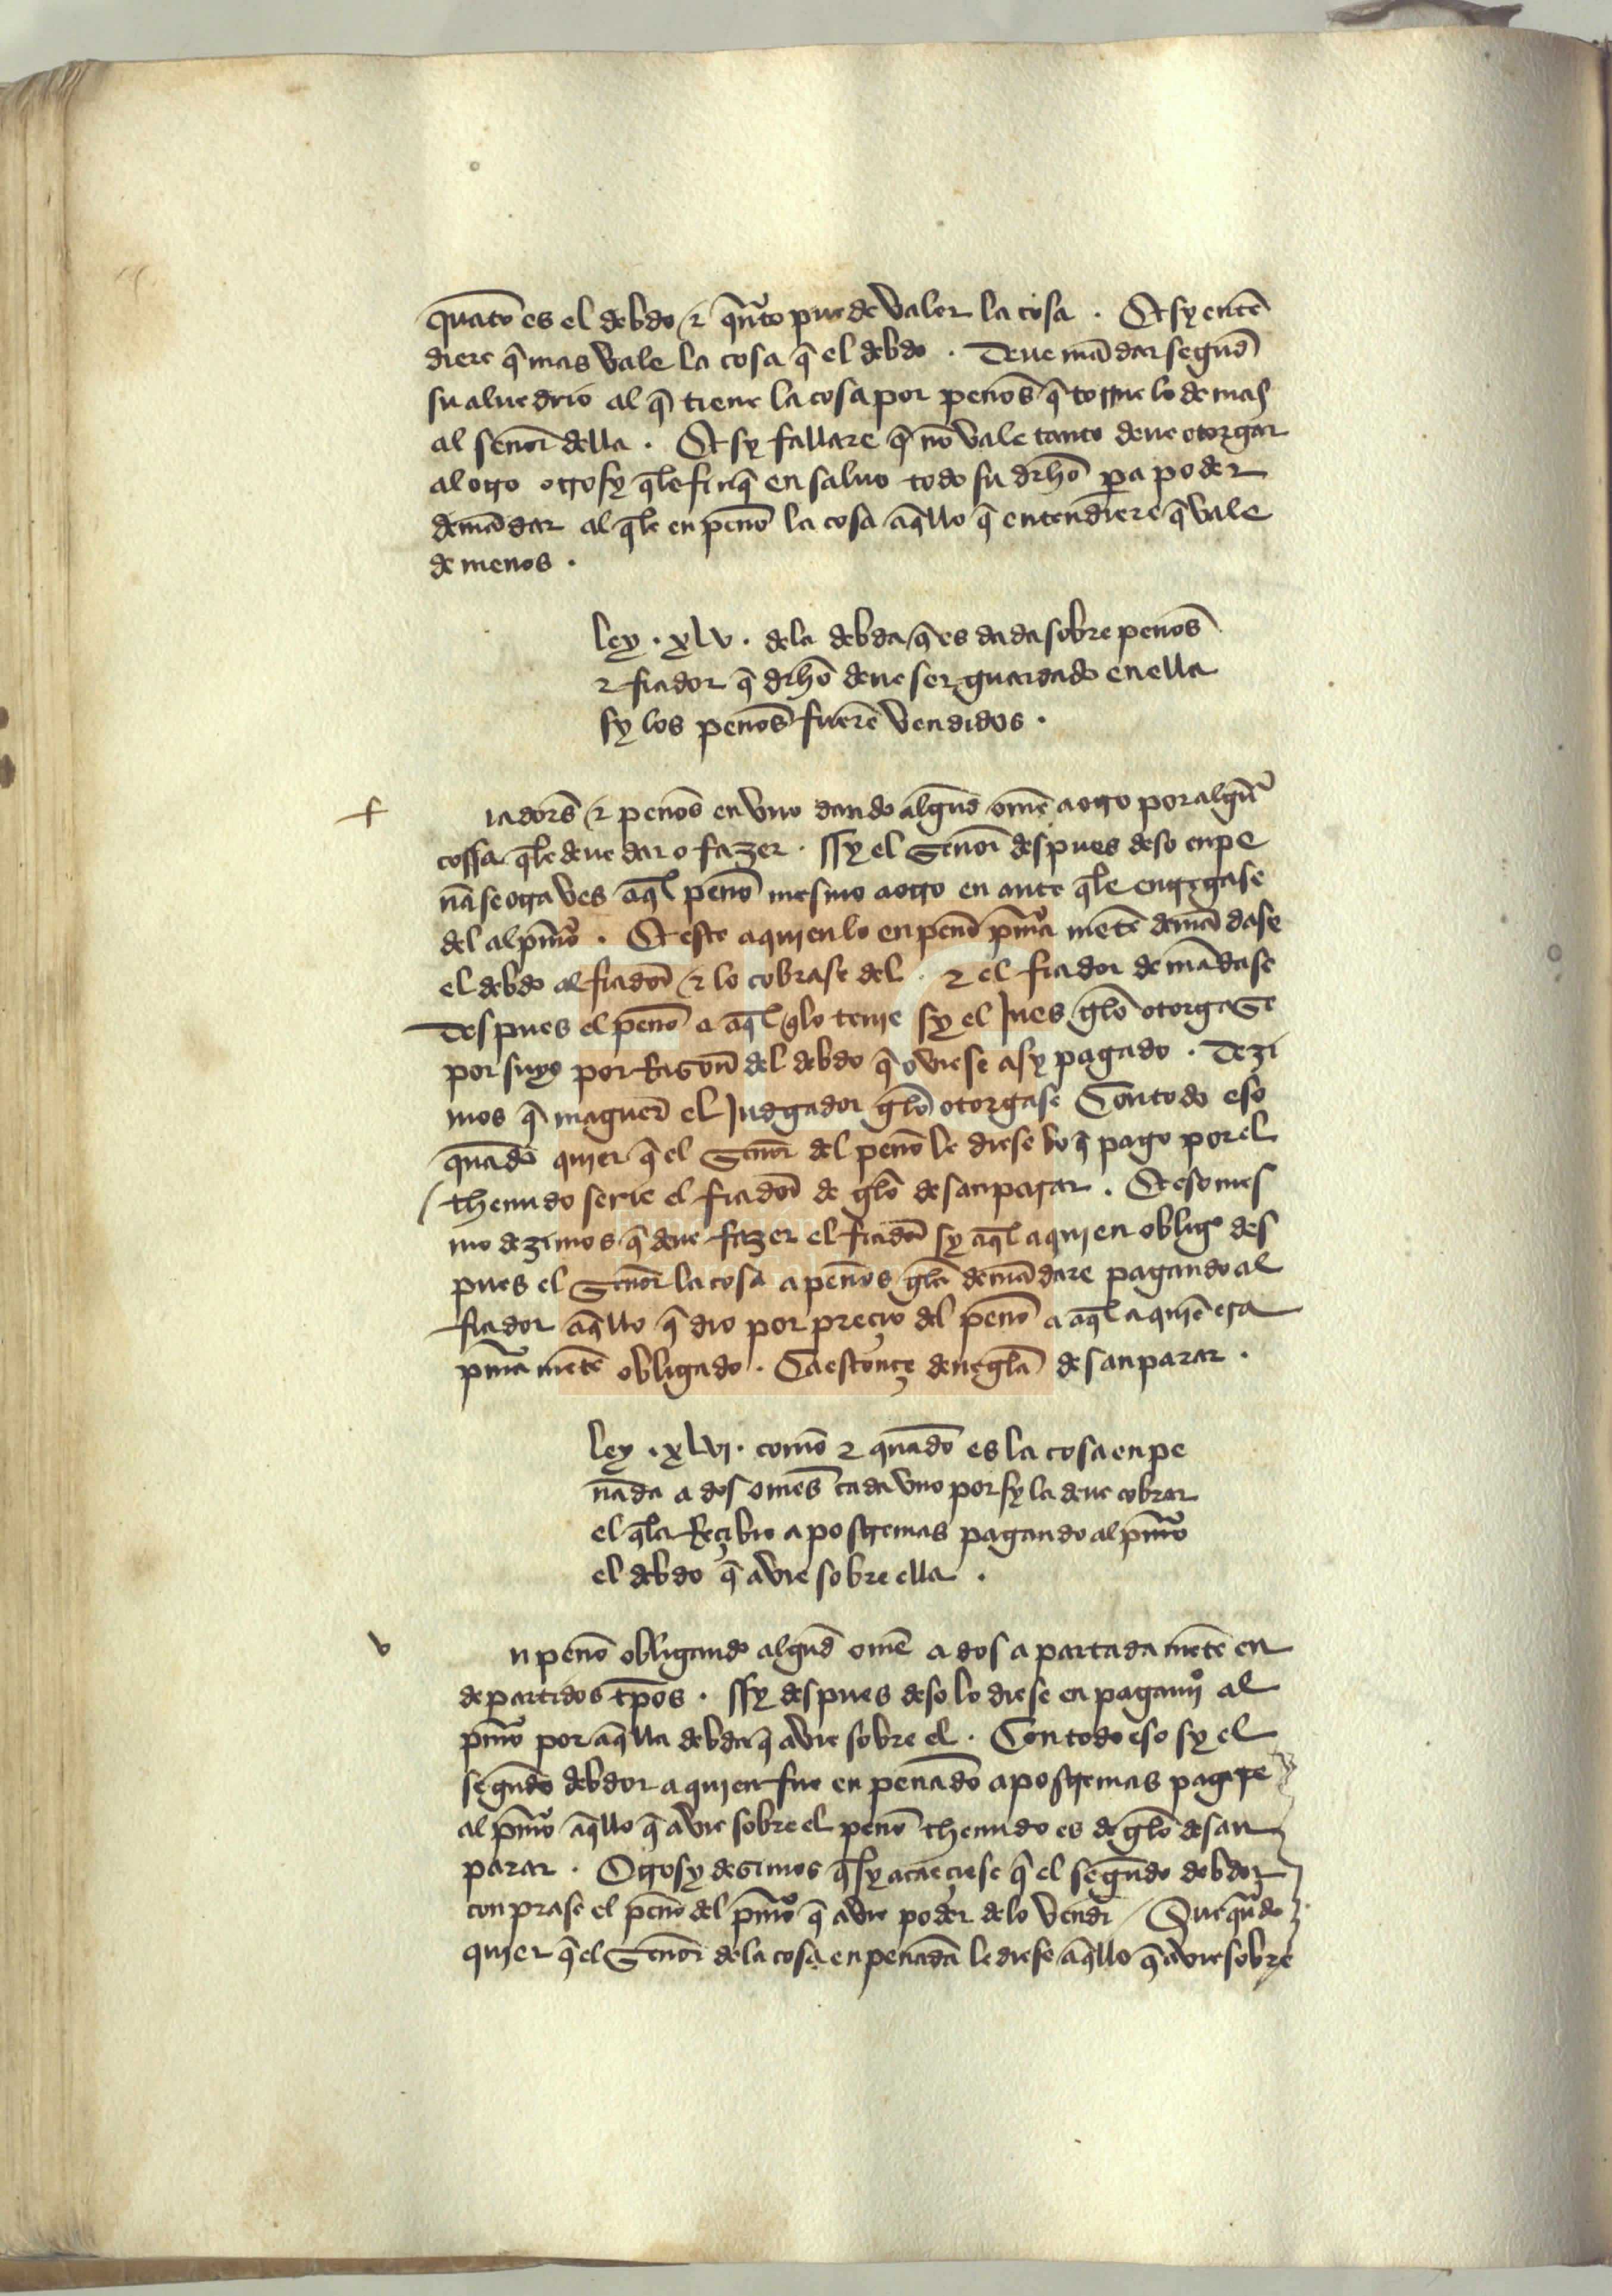 quãto es el debdo ⁊ q̃nto puede valer la cosa . Et sy entẽ
diere q̃ mas vale la cosa q̃ el debdo . Deue mãdar segũd
su aluedrio al q̃ tiene la cosa por peños q̃ torne lo de mas
al señor della . Et sy fallare q̃ nõ vale tanto deue otorgar
al otro otrosy q̃le finq̃ en saluo todo su drh̃o pa poder
demãdar al q̃le enpeño la cosa aq̃llo q̃ entendiere q̃ vale
de menos .
ley . xlv . dela debda q̃ es dada sobre peños
⁊ fiador q̃ drh̃o deue ser guardado en ella
sy los peños fuerẽ vendidos .
f
iadores̃ ⁊ peños en vno dando algund om̃e a otro por algũa
cossa q̃le deue dar o fazer . ssy el señor despues deso enpe
ñase otra ves aq̃l peño mesmo a otro en ante q̃le entregase
del al pm̃o . Et este a quien lo enpeño pm̃a metẽ demãdase
el debdo al fiador ⁊ lo cobrase del . ⁊ el fiador demãdase
despues el peño a aq̃l q̃lo tenie sy el jues gelo otorgase
por suyo por rason del debdo q̃ oviese asy pagado . Dezi
mos q̃ maguer el judgador gelo otorgase Con todo eso
quãdo quier q̃ el señor del peño le diese lo q̃ pago por el
thenudo serie el fiador de gelo desanparar . Et eso mes
mo dezimos q̃ deue fazer el fiador sy aq̃l a quien obligo des
pues el señor la cosa a peños gela demãdare pagando al
fiador aq̃llo q̃ dio por preçio del peño a aq̃l a quiẽ era
pm̃a metẽ obligado . Ca estonçe deue gela desanparar .
ley . xlvi . como ⁊ quãdo es la cosa enpe
ñada a dos omes cada vno por sy la deue cobrar
el q̃la reçibio a postremas pagando al pm̃o
el debdo q̃ avie sobre ella .
v
n peño obligando algũd om̃e a dos apartada metẽ en
departidos tp̃os . ssy despues deso lo diese en pagamiº al
pm̃o por aq̃lla debda q̃ avie sobre el . Con todo eso sy el
segũdo debdor a quien fue enpeñado a postremas pagase
al pm̃o aq̃llo q̃ avie sobre el peño thenudo es de gelo desan
parar . Otrosy desimos q̃ sy acaeçiese q̃ el segũdo debdor
conprase el peño del pm̃o q̃ avie poder delo vendr̃ / Que quãdo
quier q̃ el señor dela cosa enpeñada le diese aq̃llo q̃ avie sobre